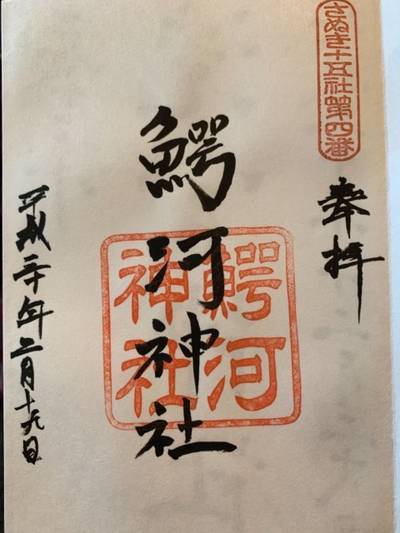 さぬき十五社第四番
奉拝
鰐河神社
鰐河
神社
平成二十年二月十九日